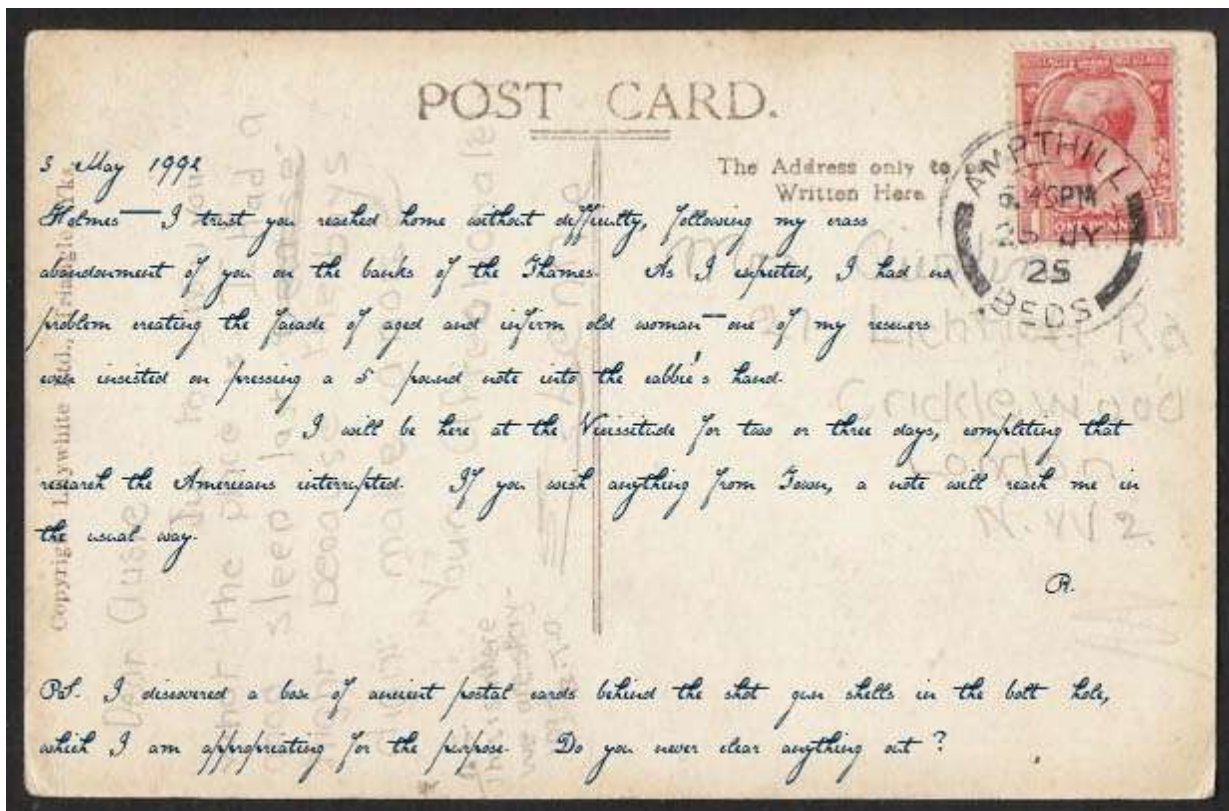 POST CARD.
The Address only to be
Written Here
AMPTHILL
45PM
25
BEDS
ONE PENNY
3 May 1992
Holmes— I trust you reached home without difficulty, following my crass
abandonment of you on the banks of the Thames. As I expected, I had no
problem creating the facade of aged and infirm old woman—one of my rescuers
even insisted on pressing a 5 pound note into the cabbie's hand.
I will be here at the Vicissitude for two or three days, completing that
research the Americans interrupted. If you wish anything from Town, a note will reach me in
the usual way.
R.
P.S. I discovered a box of ancient postal cards behind the shot gun shells in the bolt hole,
which I am appropriating for the purpose. Do you never clear anything out?
Rd
Cricklewood
London
N.W 2
Copyright Lilywhite Ltd., Triangle